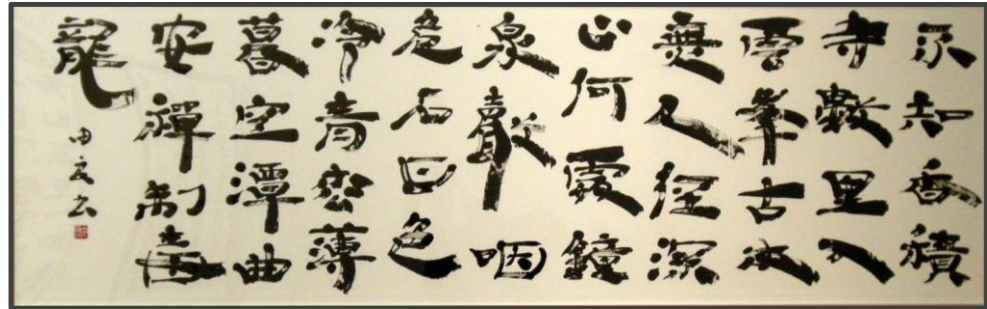 不知香積
寺數里入
雲峯古木
無人徑深
山何處鐘
泉聲咽
危石日色
冷青松薄
暮空潭曲
安禪制毒
龍